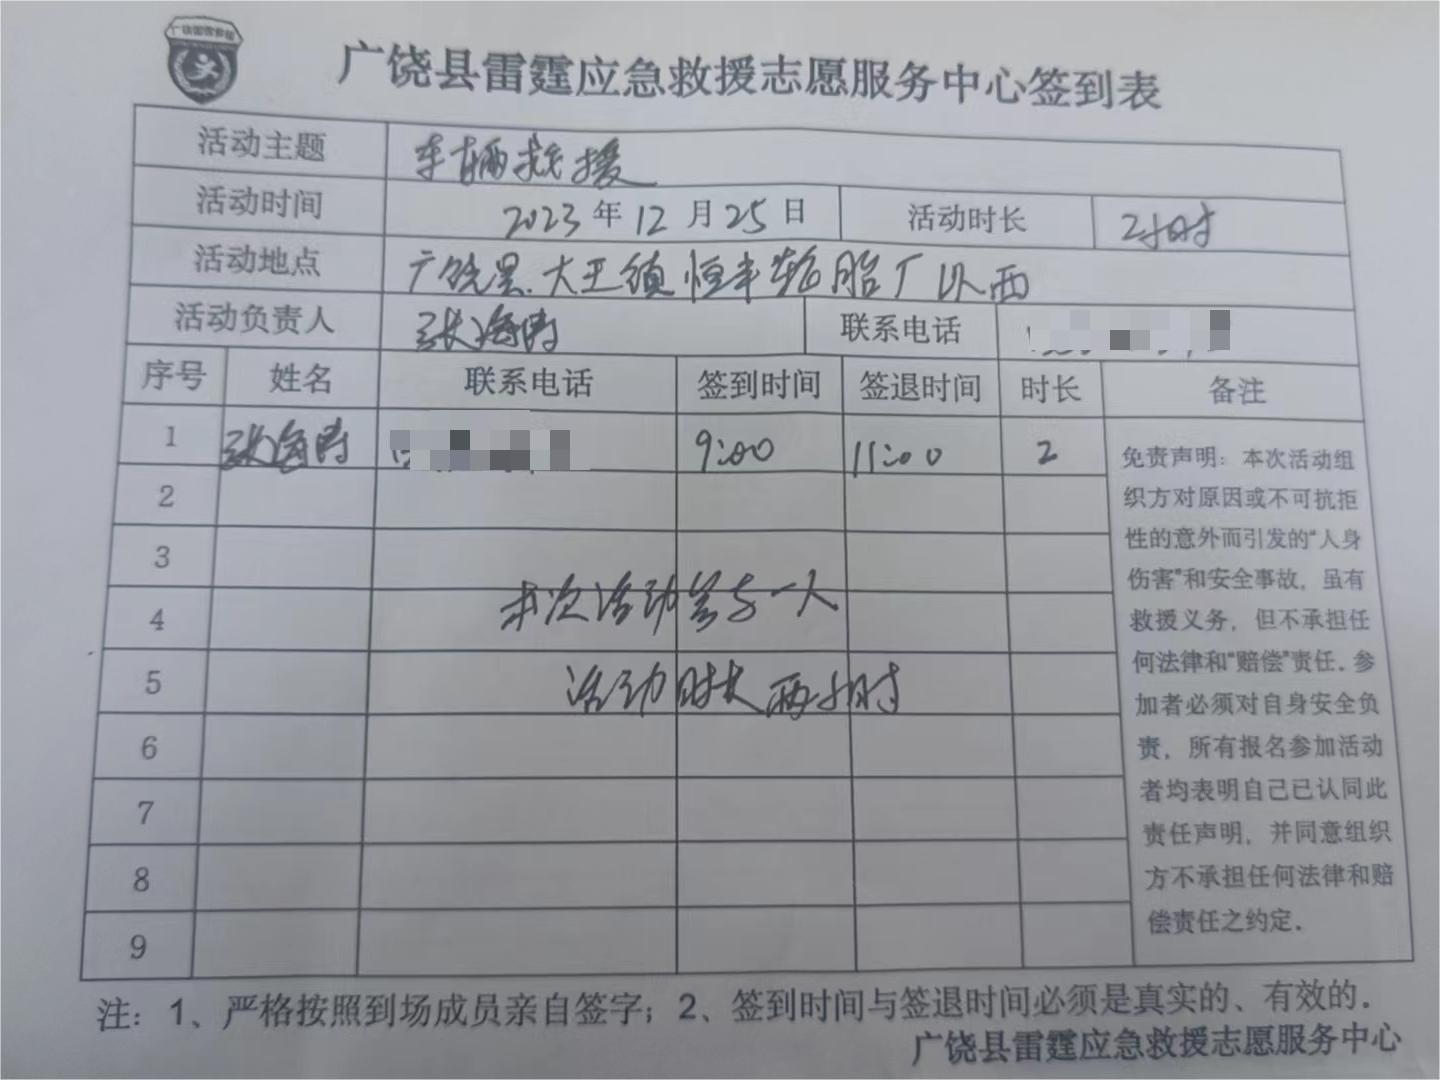 广饶县雷霆应急救援志愿服务中心签到表
活动主题 车辆救援
活动时间 2023年12月25日 活动时长 2小时
活动地点 广饶县大王镇恒丰轮胎厂以西
活动负责人 张海涛 联系电话
序号 姓名 联系电话 签到时间 签退时间 时长 备注
1 张海涛 9:00 11:00 2
2
3
4 本次活动参与一人
5 活动时长两小时
6
7
8
9
免责声明：本次活动组
织方对原因或不可抗拒
性的意外而引发的“人身
伤害”和安全事故，虽有
救援义务，但不承担任
何法律和“赔偿”责任．参
加者必须对自身安全负
责，所有报名参加活动
者均表明自己已认同此
责任声明，并同意组织
方不承担任何法律和赔
偿责任之约定．
注：1、严格按照到场成员亲自签字；2、签到时间与签退时间必须是真实的、有效的．
广饶县雷霆应急救援志愿服务中心